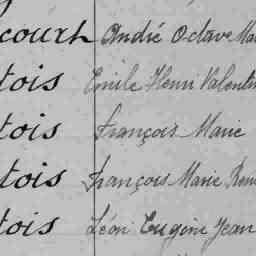 court André Octave Ma
tois Emile Henri Valentin
tois François Marie
tois François Marie René
tois Léon Eugène Jean